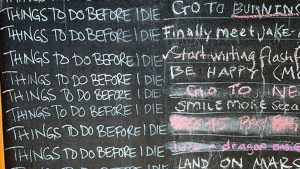 THINGS TO DO BEFORE I DIE GO TO BURNING
THINGS TO DO BEFORE I DIE Finally meet Jake
THINGS TO DO BEFORE I DIE Start writing
THINGS TO DO BEFORE I DIE BE HAPPY
THINGS TO DO BEFORE I DIE GO TO NE
THINGS TO DO BEFORE I DIE SMILE MORE
THINGS TO DO BEFORE I DIE
THINGS TO DO BEFORE I DIE a dragon
THINGS TO DO BEFORE I DIE LAND ON MARS